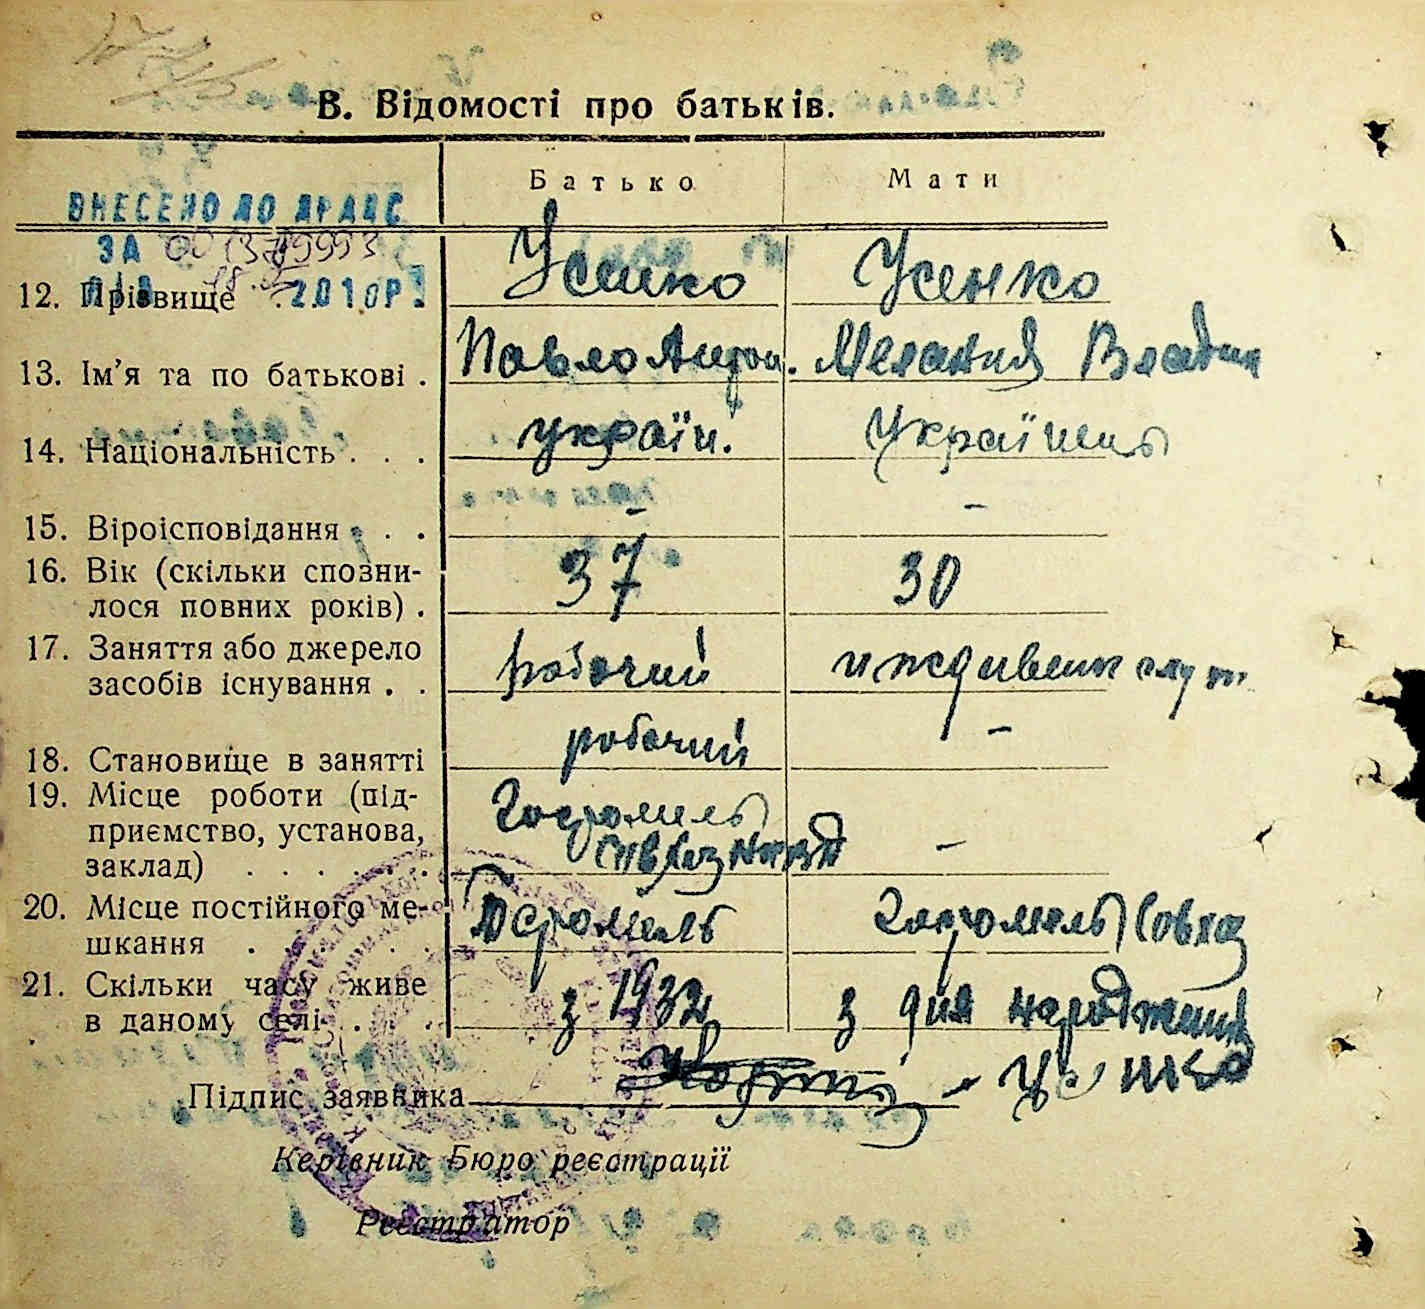 В. Відомості про батьків.
Батько Мати
ВНЕСЕНО ДО ДРАЦС
ЗА
12. Прізвище Усенко Усенко
2010Р.
13. Ім’я та по батькові . Павло Антон. Мелания Владим
14. Національність . . . україн. Українець
15. Віроісповідання . . . – –
16. Вік (скільки сповни-
лося повних років) . 37 30
17. Заняття або джерело
засобів існування . . робочий иждивен служ.
18. Становище в занятті робочий –
19. Місце роботи (під-
приємство, установа,
заклад) . . . . . . Гостомель –
20. Місце постійного ме-
шкання . . . . . Гостомель Гостомель Совхоз
21. Скільки часу живе
в даному селі . . . з 1932 з дня народження
Підпис заявника – Усенко
Керівник Бюро реєстрації
Реєстратор